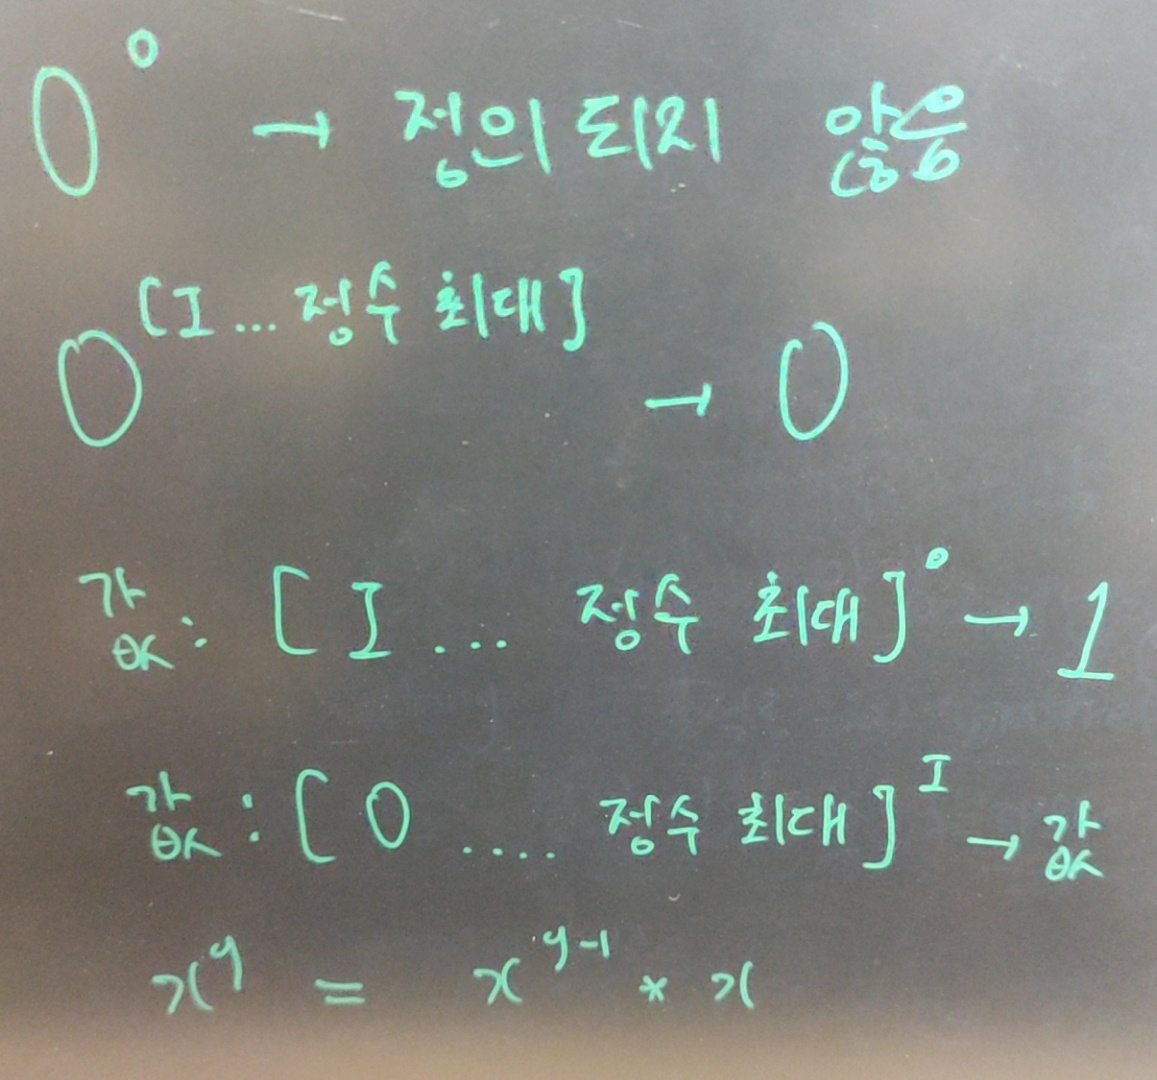 0⁰ → 정의되지 않음
0^[I... 정수 최대] → 0
값: [I... 정수 최대]⁰ → 1
값: [0.... 정수 최대]^I → 값
x^y = x^y-1 * x